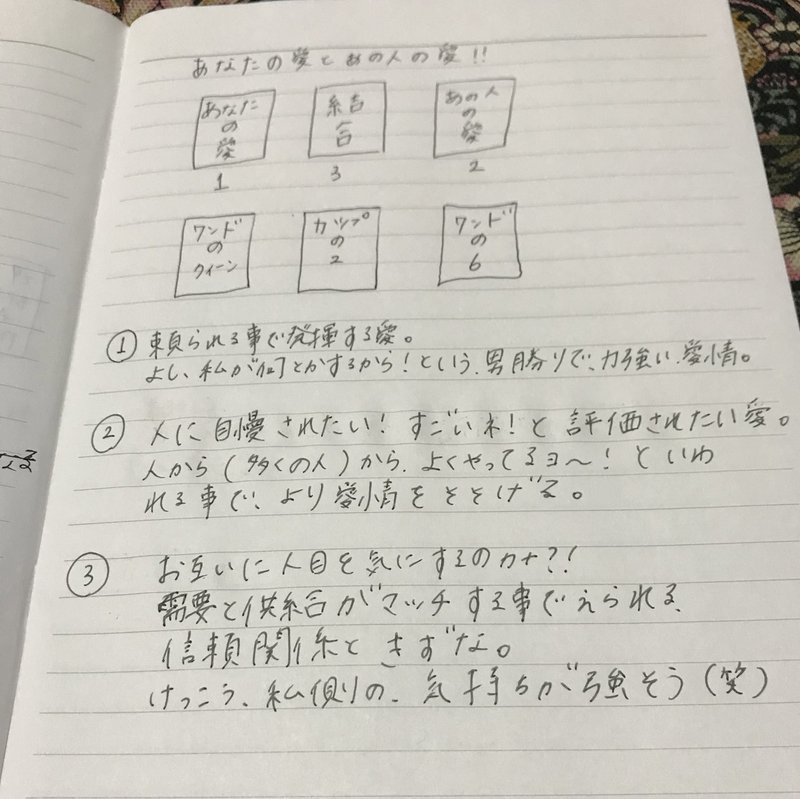 あなたの愛とあの人の愛!!
あなた
の
愛
結
合
あの人
の
愛
1
3
2
ワンド
の
クイーン
カップ
の
2
ワンド
の
6
① 頼られる事で発揮する愛。
よし、私が何とかするから!という、男勝りで、力強い、愛情。
② 人に自慢されたい!すごいネ!と評価されたい愛。
人から(多くの人)から、よくやってるヨ〜!といわ
れる事で、より愛情をそそげる。
③ お互いに人目を気にするのカナ?!
需要と供給がマッチする事でえられる、
信頼関係ときずな。
けっこう、私側りの、気持ちが強そう(笑)